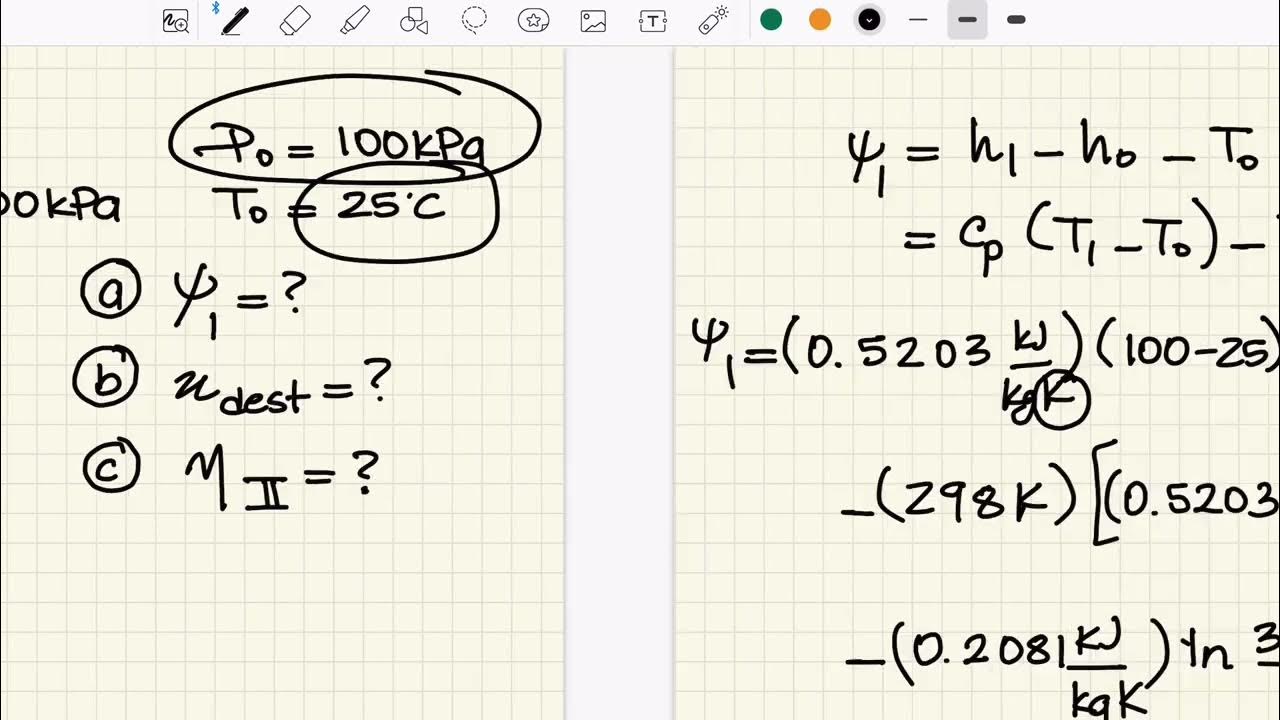 P₀ = 100kPa
00kPa T₀ = 25°C
ⓐ ψ₁ = ?
ⓑ x_dest = ?
ⓒ η_II = ?
ψ₁ = h₁ - h₀ - T₀
= Cp (T₁ - T₀) -
ψ₁ = (0.5203 kJ/kgK)(100-25)
-(298K)[(0.5203
-(0.2081 kJ/kgK) ln 3